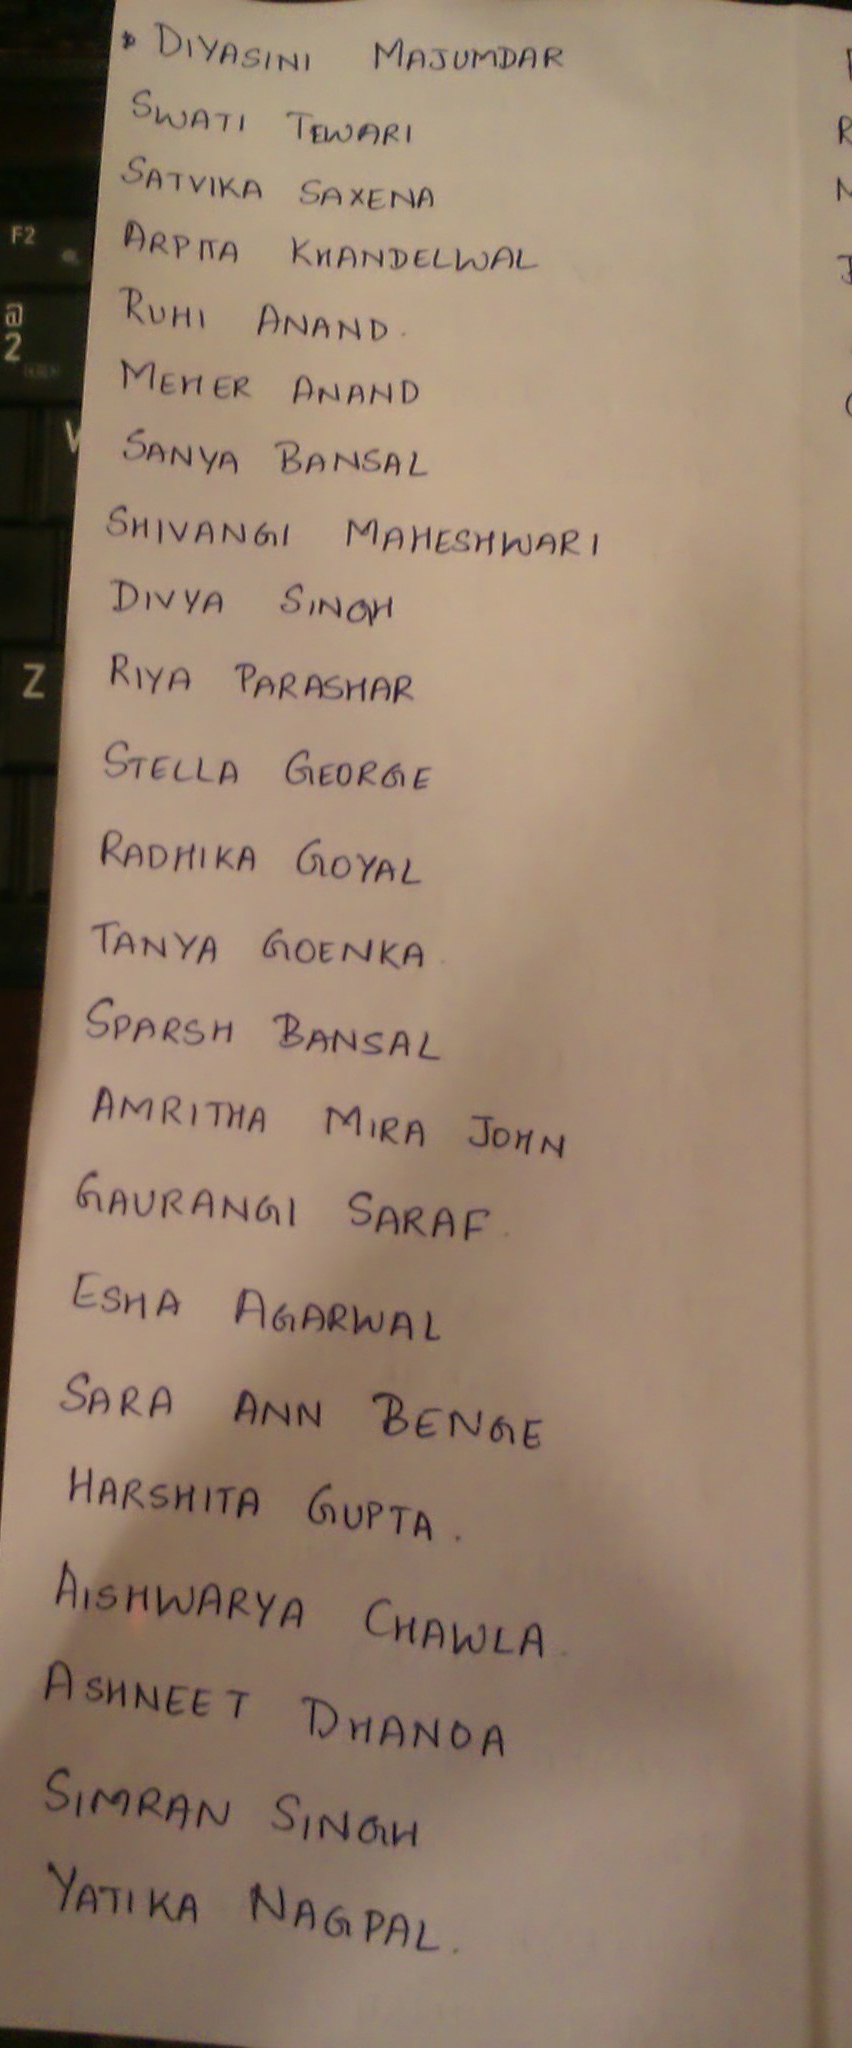 • DIYASINI MAJUMDAR
SWATI TEWARI
SATVIKA SAXENA
ARPITA KHANDELWAL
RUHI ANAND.
MEHER ANAND
SANYA BANSAL
SHIVANGI MAHESHWARI
DIVYA SINGH
RIYA PARASHAR
STELLA GEORGE
RADHIKA GOYAL
TANYA GOENKA.
SPARSH BANSAL
AMRITHA MIRA JOHN
GAURANGI SARAF.
ESHA AGARWAL
SARA ANN BENGE
HARSHITA GUPTA.
AISHWARYA CHAWLA.
ASHNEET DHANOA
SIMRAN SINGH
YATIKA NAGPAL.
F2
@
2
Z